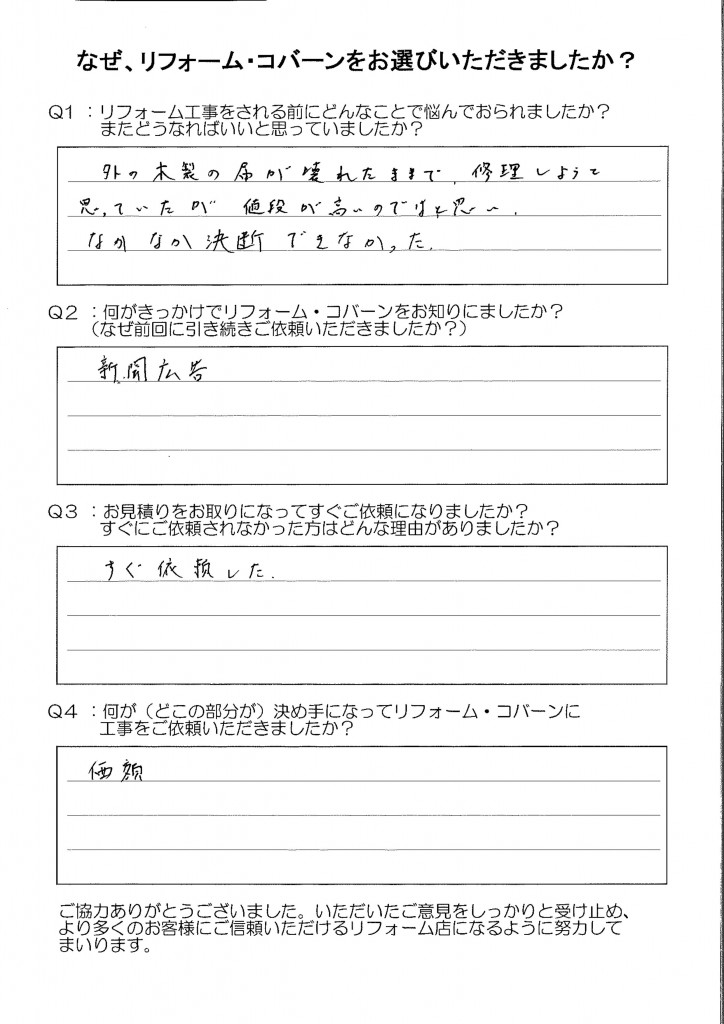 なぜ、リフォーム・コバーンをお選びいただきましたか?
Q1 :リフォーム工事をされる前にどんなことで悩んでおられましたか?
またどうなればいいと思っていましたか?
外の木製の扉が壊れたままで、修理しようと
思っていたが 値段が高いのではと思い、
なかなか決断できなかった。
Q2 :何がきっかけでリフォーム・コバーンをお知りにましたか?
(なぜ前回に引き続きご依頼いただきましたか?)
新聞広告
Q3 :お見積りをお取りになってすぐご依頼になりましたか?
すぐにご依頼されなかった方はどんな理由がありましたか?
すぐ依頼した。
Q4 :何が(どこの部分が)決め手になってリフォーム・コバーンに
工事をご依頼いただきましたか?
価額
ご協力ありがとうございました。いただいたご意見をしっかりと受け止め、
より多くのお客様にご信頼いただけるリフォーム店になるように努力して
まいります。